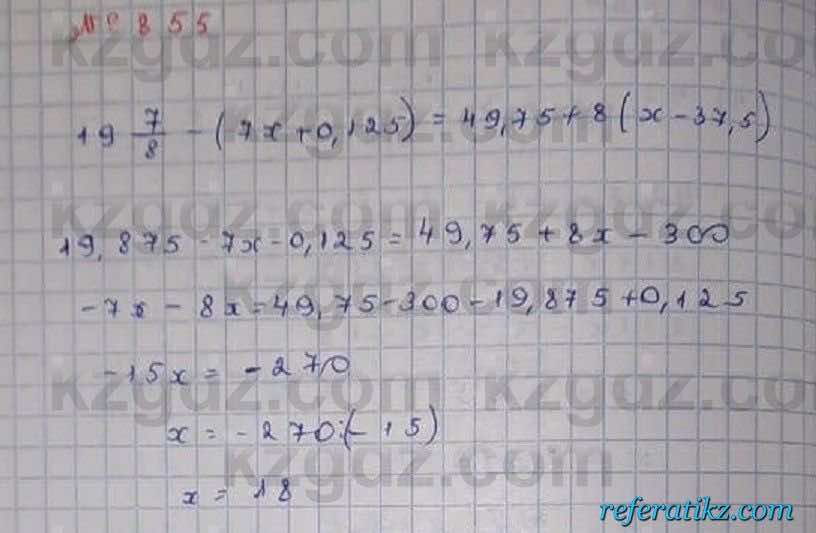 № 855
kzgdz.com kzgdz.com
19 7/8 - (7x+0,125) = 49,75+8(x-37,5)
kzgdz.com kzgdz.com
19,875-7x-0,125=49,75+8x-300
-7x-8x=49,75-300-19,875+0,125
-15x=-270
kzgdz.com kzgdz.com
x=-270:(-15)
kzgdz.com
x=18
referatikz.com